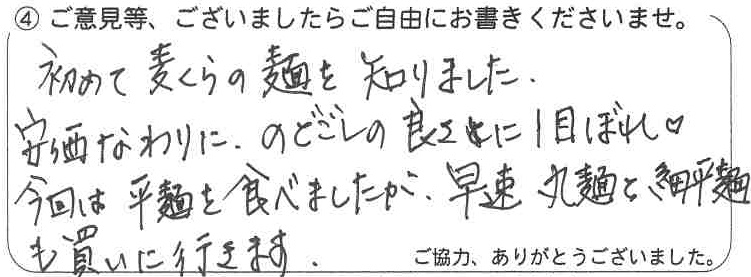 ④ ご意見等、ございましたらご自由にお書きくださいませ。
初めて麦くらの麺を知りました.
安価なわりに.のどごしの良さに1目ぼれ♡
今回は平麺を食べましたが、早速丸麺と、細平麺
も買いに行きます.
ご協力、ありがとうございました。